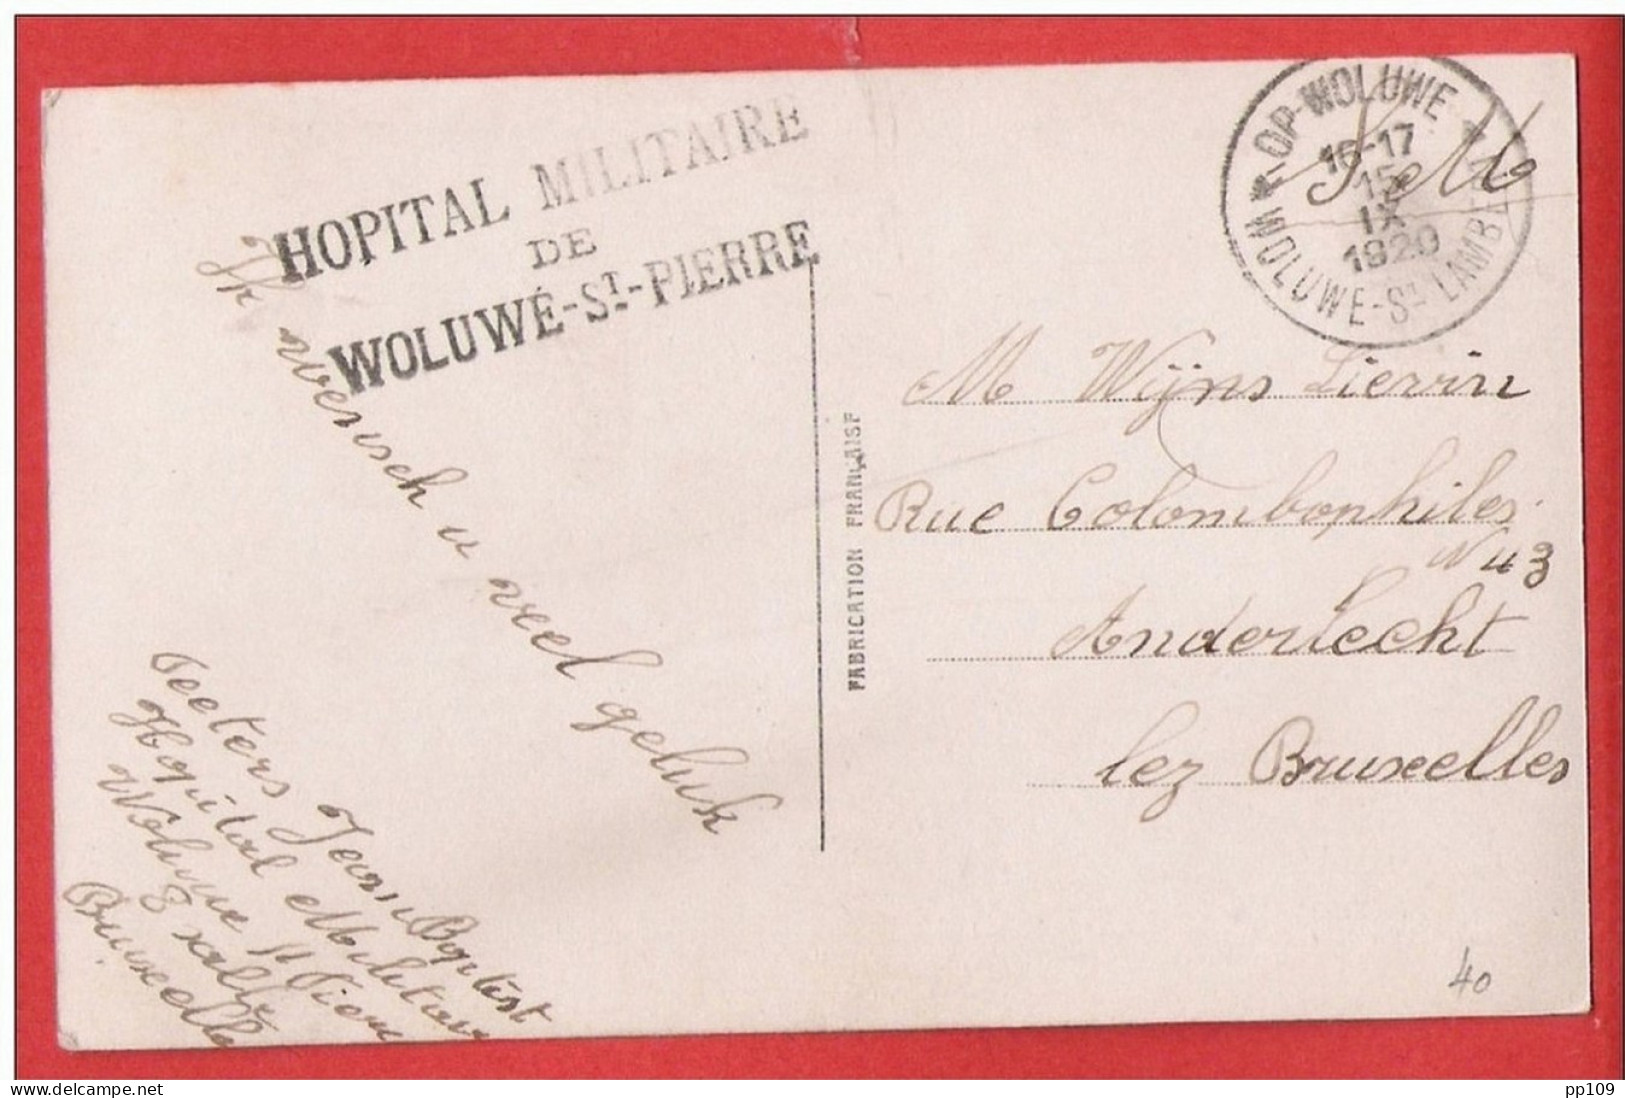 HOPITAL MILITAIRE
DE
WOLUWÉ-ST-PIERRE
ST-LAMB.-WOLUWE
16-17
15
IX
1920
WOLUWE-ST LAMBERT
S. M
Ik wensch u veel geluk
Peeters Jean Baptist
Hopital Militaire
Woluwe St Piere
3 salle
Bruxelle
FABRICATION FRANÇAISE
M Wÿns Lievin
Rue Colombophiles
N 43
Anderlecht
lez Bruxelles
40
pp109